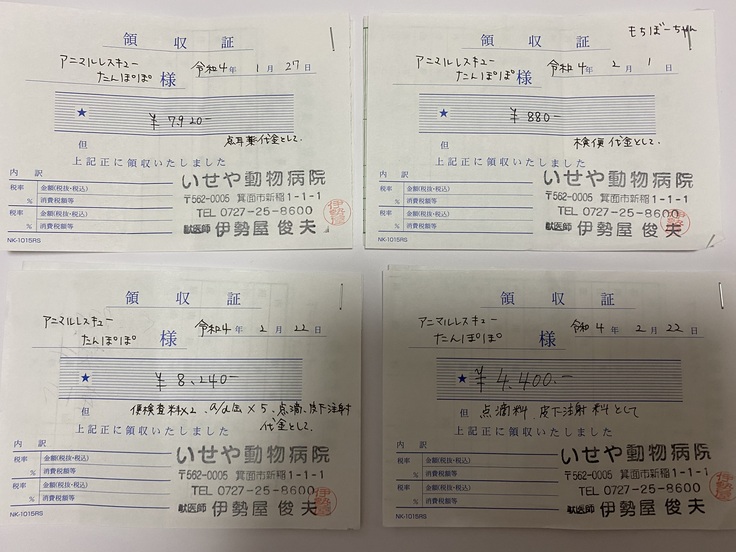 領収証
アニマルレスキュー
たんぽぽ 様
令和4年1月27日
★ ¥7920-
但 点耳薬代金として.
上記正に領収いたしました
内訳
税率 金額(税抜・税込)
% 消費税額等
税率 金額(税抜・税込)
% 消費税額等
NK-1015RS
いせや動物病院
〒562-0005 箕面市新稲1-1-1
TEL 0727-25-8600
獣医師 伊勢屋 俊夫
もちぼーちゃん
領収証
アニマルレスキュー
たんぽぽ 様
令和4年2月1日
★ ¥880-
但 検便代金として.
上記正に領収いたしました
内訳
税率 金額(税抜・税込)
% 消費税額等
税率 金額(税抜・税込)
% 消費税額等
NK-1015RS
いせや動物病院
〒562-0005 箕面市新稲1-1-1
TEL 0727-25-8600
獣医師 伊勢屋 俊夫
領収証
アニマルレスキュー
たんぽぽ 様
令和4年2月22日
★ ¥8,240-
但 便検査料×2、a/d缶×5、点滴、皮下注射
代金として.
上記正に領収いたしました
内訳
税率 金額(税抜・税込)
% 消費税額等
税率 金額(税抜・税込)
% 消費税額等
NK-1015RS
いせや動物病院
〒562-0005 箕面市新稲1-1-1
TEL 0727-25-8600
獣医師 伊勢屋 俊夫
領収証
アニマルレスキュー
たんぽぽ 様
令和4年2月22日
★ ¥4,400-
但 点滴料、皮下注射料として
上記正に領収いたしました
内訳
税率 金額(税抜・税込)
% 消費税額等
税率 金額(税抜・税込)
% 消費税額等
NK-1015RS
いせや動物病院
〒562-0005 箕面市新稲1-1-1
TEL 0727-25-8600
獣医師 伊勢屋 俊夫